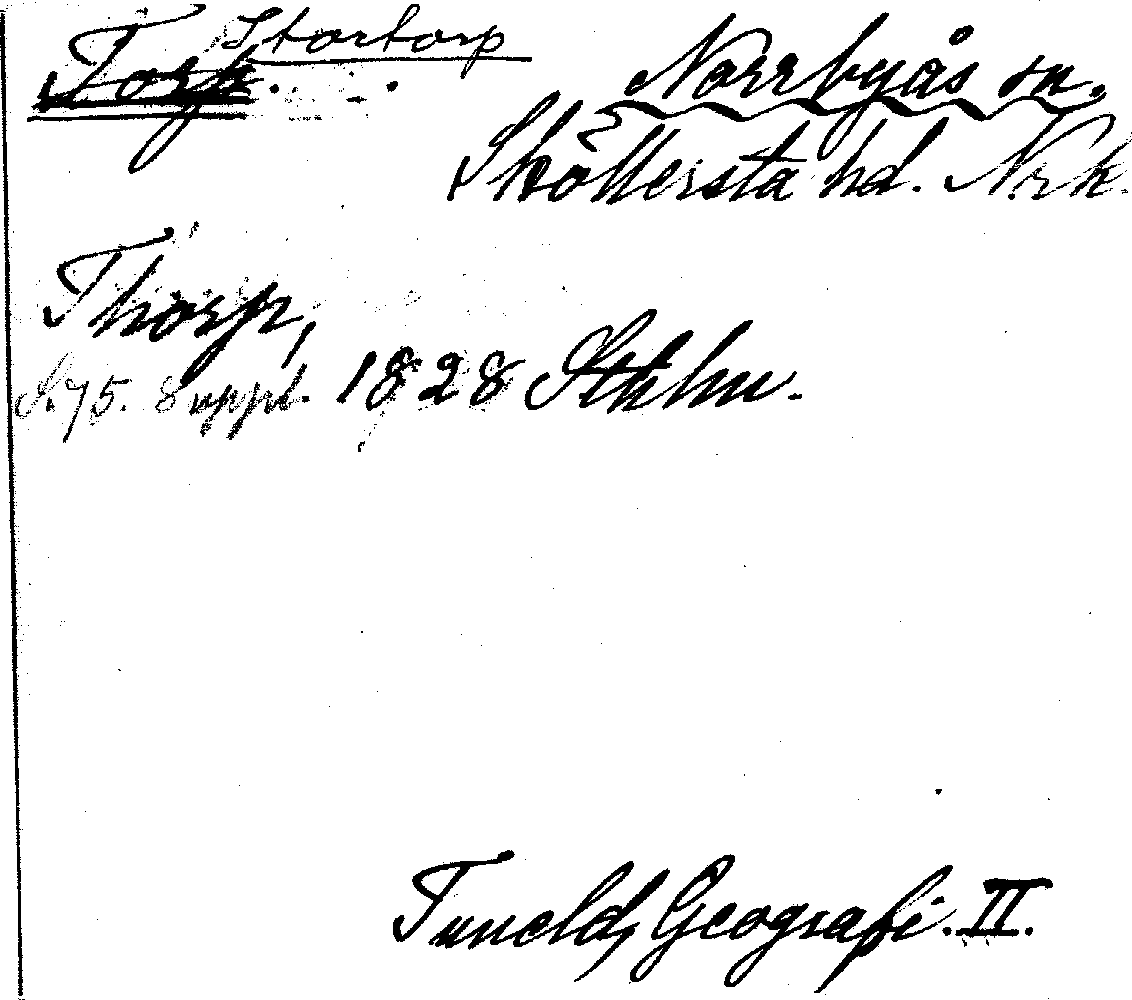 Stortorp
Torp. Norrbyås sn.
Sköllersta hd. Nrk.
Thorp,
S. 75. Suppl. 1828 Sthlm.
Tuneld, Geografi. II.